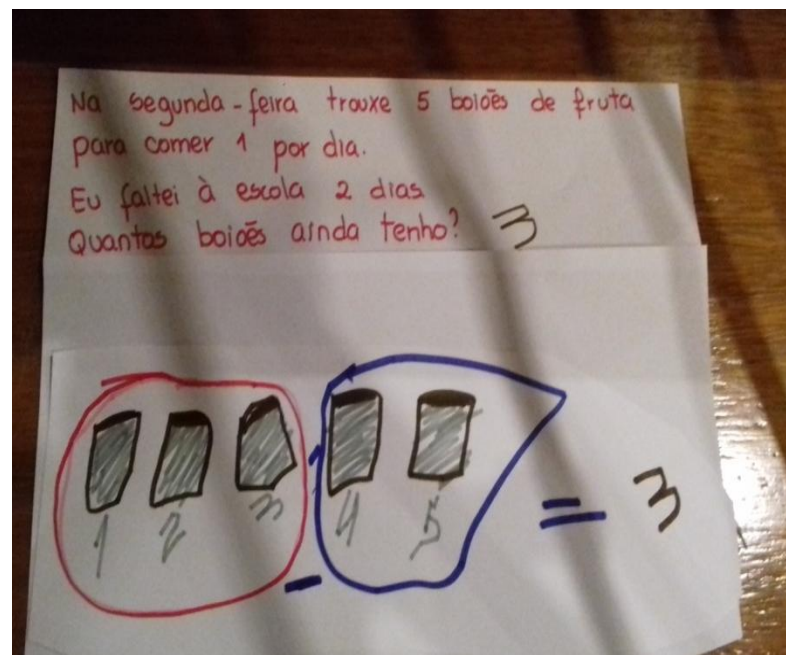 Na segunda-feira trouxe 5 boiões de fruta
para comer 1 por dia.
Eu faltei à escola 2 dias
Quantos boiões ainda tenho? 3
1 2 3 - 4 5 = 3